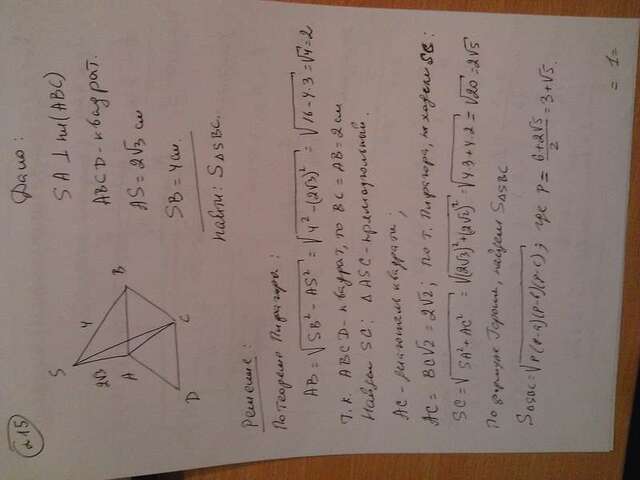 215
Дано:
SA ⊥ пл(ABC)
ABCD - квадрат.
AS = 2√3 см
SB = 4 см.
Найти: S△SBC.
S
4
2√3
A
B
C
D
Решение:
По теореме Пифагора:
AB = √SB² - AS² = √4² - (2√3)² = √16 - 4·3 = √4 = 2
т.к. ABCD - квадрат, то BC = AB = 2 см
Найдем SC: △ASC - прямоугольный.
AC - диагональ квадрата;
AC = BC√2 = 2√2; по т. Пифагора, находим SC:
SC = √SA² + AC² = √(2√3)² + (2√2)² = √4·3 + 4·2 = √20 = 2√5
По формуле Герона, найдем S△SBC
S△SBC = √p(p-a)(p-b)(p-c); где p = 6+2√5/2 = 3+√5.
= 1 =